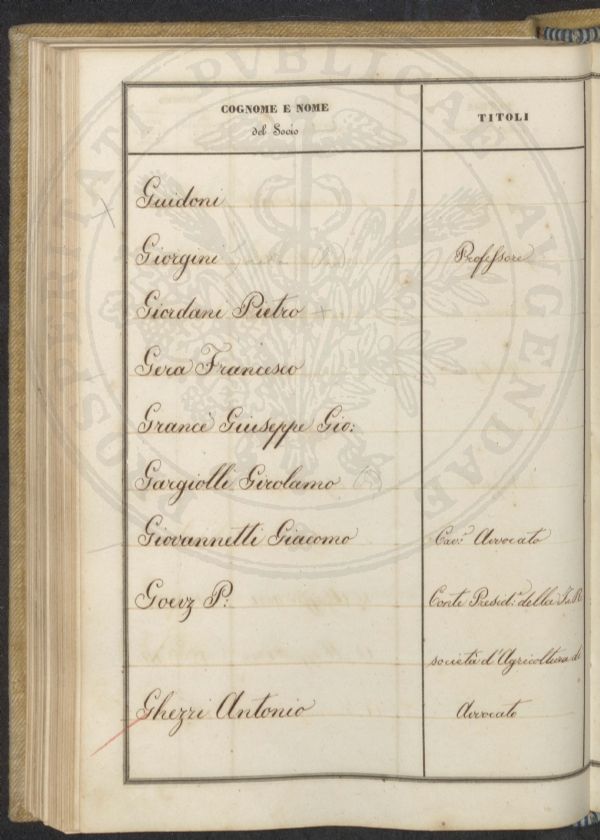 PROSPERITATI PVBLICAE AVGENDAE
COGNOME E NOME
del Socio
TITOLI
Guidoni
Giorgini Professore
Giordani Pietro
Gera Francesco
Grancè Giuseppe Gio:
Gargiolli Girolamo
Giovannetti Giacomo Cav.e Avvocato
Goerz P: Conte Presid.e della I. R
società d'Agricoltura di
Ghezzi Antonio Avvocato